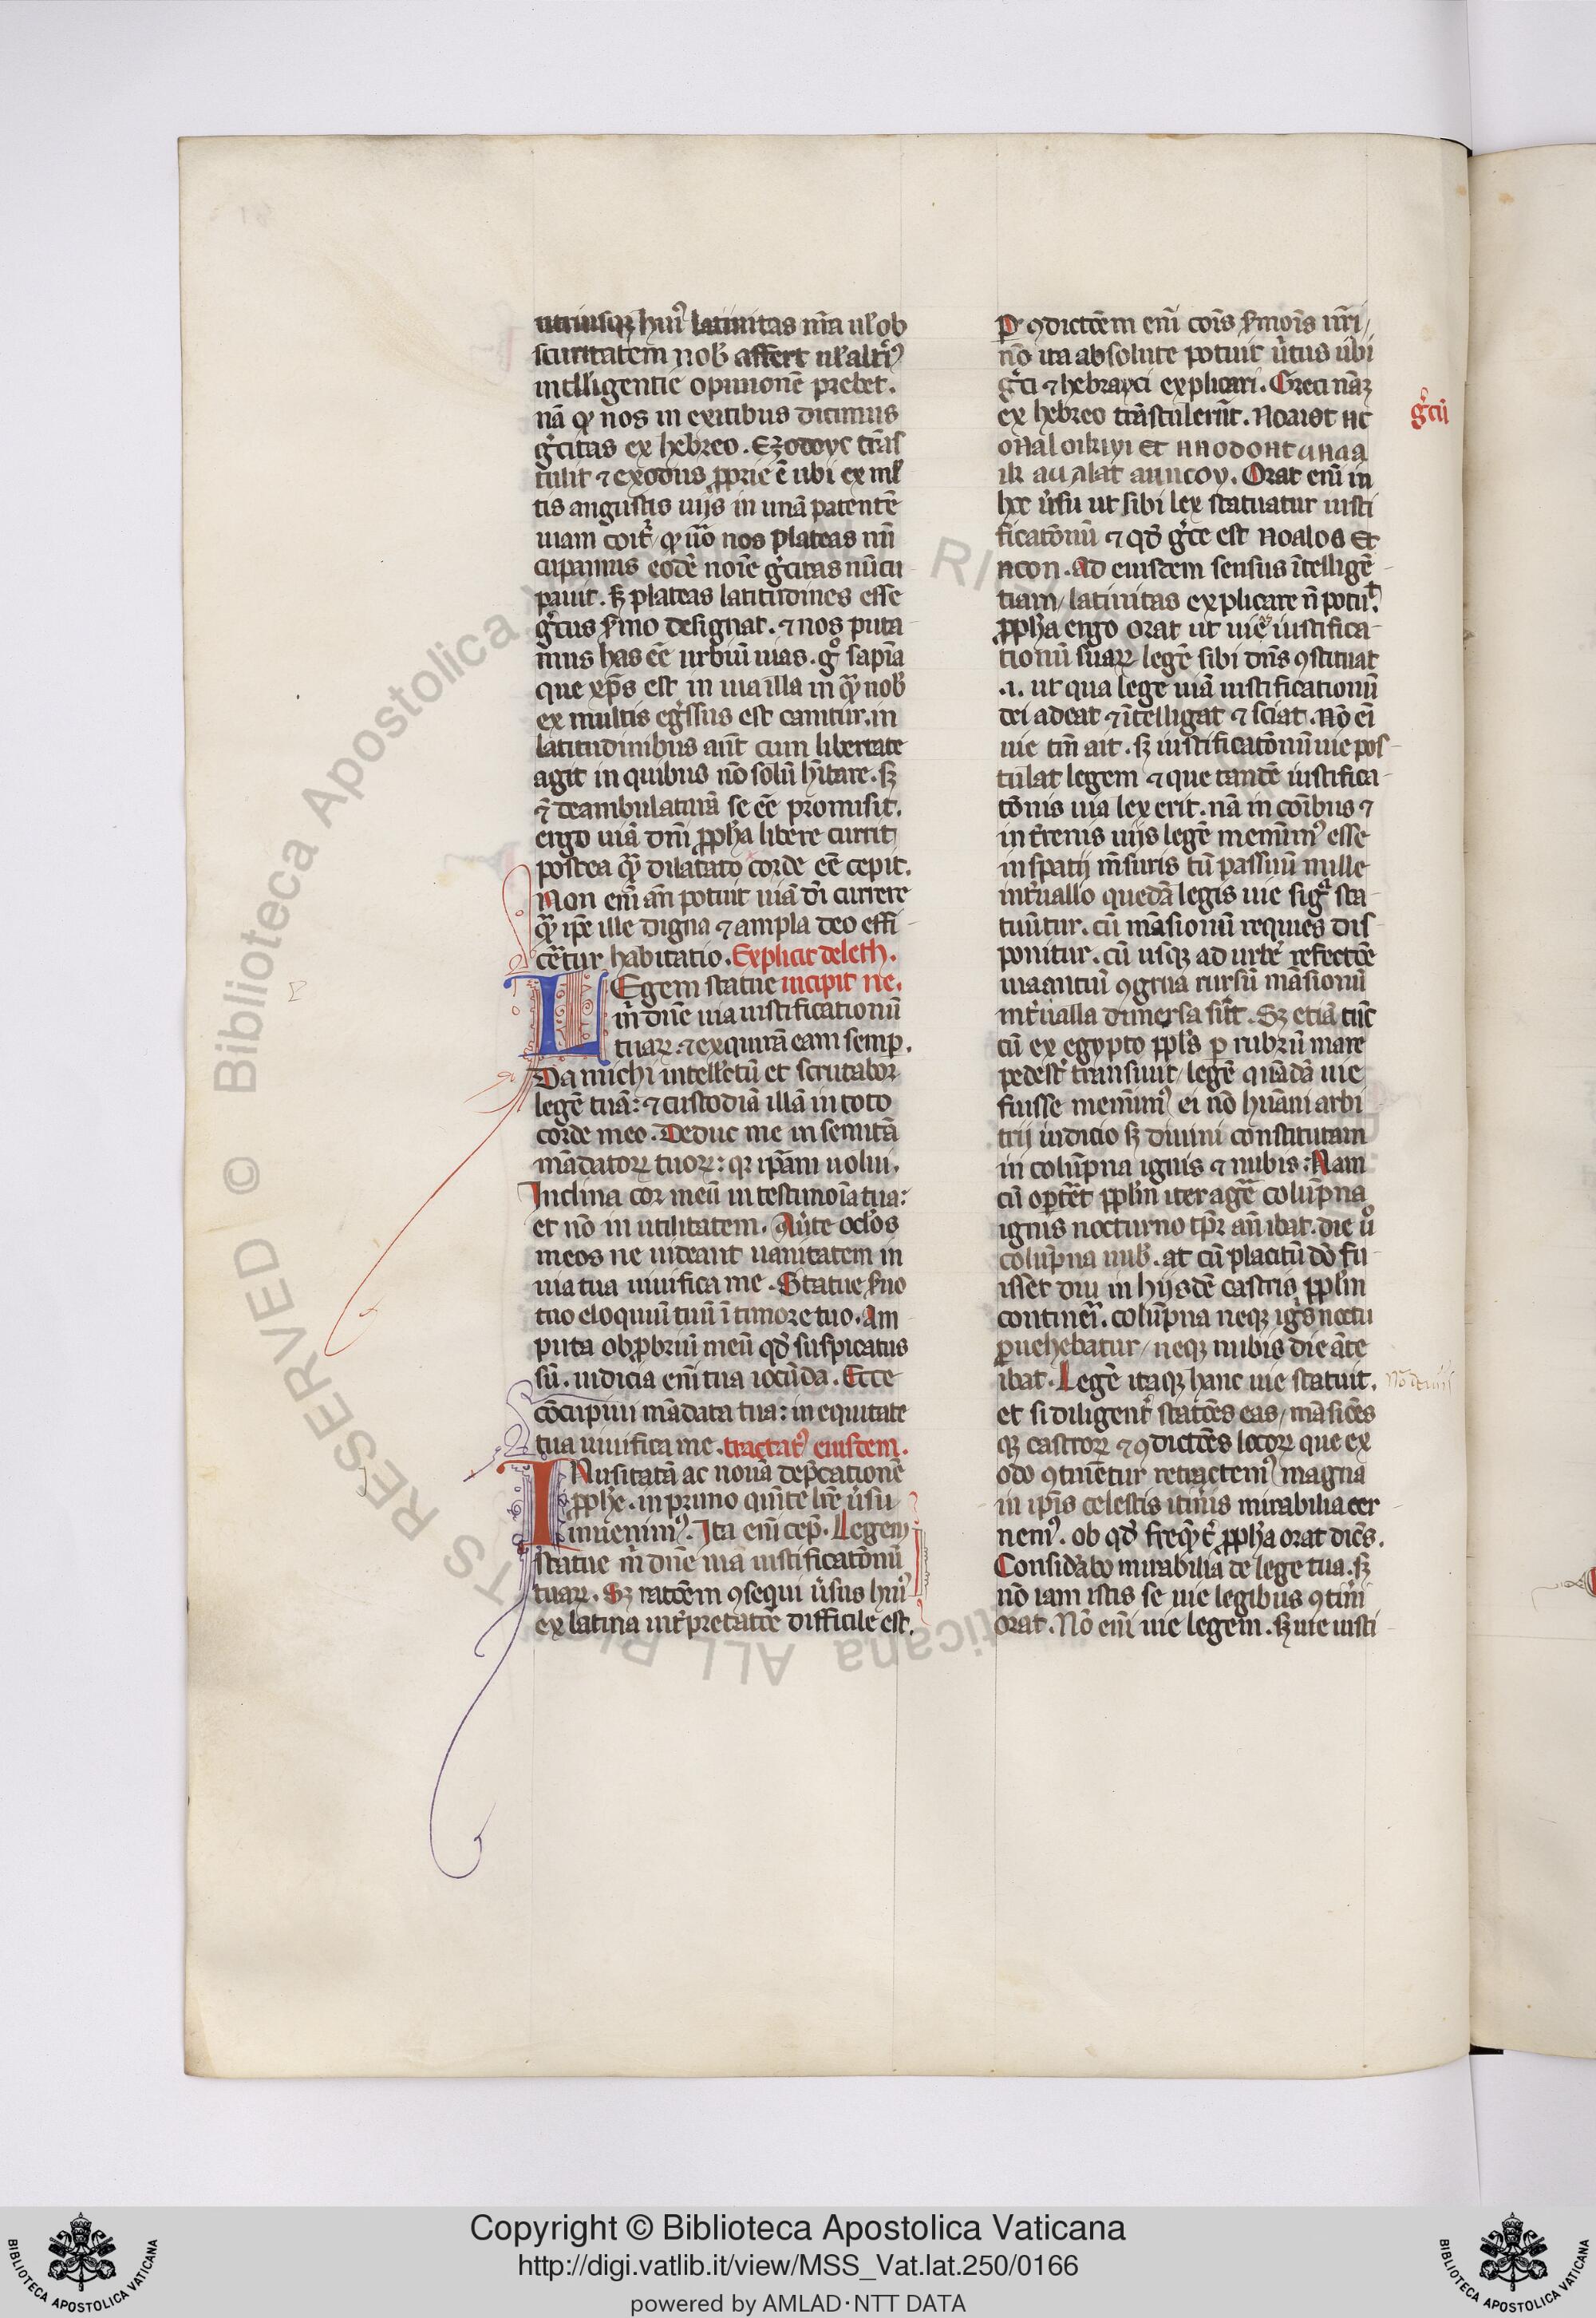 utriusqʒ huiꝰ latinitas nr̄a ul̓ ob
scuritatem nob̓ affert ul̓ altiꝰ
intelligentie opinionē prebet.
nā qͥ nos in exitibus dicimus
gͣcitas ex hebreo. Eʒodoyc trās
tulit ⁊ exodus ꝓprie ē ubi ex ml̓
tis angustis uijs in unā patentē
uiam coit᷑/ qͥ uͦo nos plateas nū
cupamus eodē noīe gͣcitas nūcu
pauit. sʒ plateas latitudines esse
gͣcus s̓mo designat. ⁊ nos puta
mus has eē urbiū uias. gͦ sapīa
que xp̄s est in uia illa in qͣ nob̓
ex multis egͣssus est canitur. in
latitudinibus aūt cum libertate
agit in quibus nō solū hītare. sʒ
⁊ deambulaturā se eē promisit.
ergo uiā dn̄i ꝓph̄a libere currit
postea qͣ dilatato corde eē cepit.
Non enī an̄ potuit uiā dn̄i currere
qͣ ip̄e ille digna ⁊ ampla deo effi
cēr̄tur habitatio. Explicit deleth.
LEgem statue incipit ne.
m̄ dn̄e uia iustificationū
tuaꝝ. ⁊ exquirā eam semp̱.
Da michi intell̓ctū et scrutabor
legē tuā: ⁊ custodiā illā in toto
corde meo. Deduc me in semitā
mādatoꝝ tuoꝝ: qꝛ ip̄am uolui.
Inclina cor meū in testimōia tua:
et nō in utilitatem. Au̓te ocl̓os
meos ne uideant uanitatem in
uia tua uiuifica me. Statue s̓uo
tuo eloquiū tuū ī timore tuo. Am
puta obꝓbriū meū qd̄ suspicatus
sū. iudicia enī tua iocūda. Ecce
cōcupiui mādata tua: in equitate
tua uiuifica me. tractatꝰ eiusdem.
INusitatā ac nouā dep̄cationē
ꝓph̄e. in primo quīte lr̄e u̓su
inuenimꝰ. Ita enī cep̄. Legem
statue m̄ dn̄e uiā iustificatōnū
tuaꝝ. Sʒ ratōem ꝯsequi u̓sus huiꝰ
ex latina int̓pretatōe difficile est.
P̱ ꝯdictōem enī cōis s̓mōis nr̄i/
nō ita absolute potuit u̓tus ubi
gͣci ⁊ hebrayci explicari. Greci nāʒ
ex hebreo trāstulerūt.
gͣcū
Orat enī in
hoc u̓su ut sibi lex statuatur iusti
ficatōnū ⁊ qd̄ gͣce est
Ad eiusdem sensus ītelligē
tiam/ latinitas explicare n̄ potuͥt.
ꝓph̄a ergo orat ut uie iustifica
tionū suaꝝ legē sibi dn̄s ꝯstituat
.i. ut qua lege uiā iustificationū
dei adeat ⁊ ītelligat ⁊ sciat. Nō eī
uie tm̄ ait. sʒ iustificatōnū uie pos
tulat legem ⁊ que tandē iustifica
tōnis uia lex erit. nā in cōibus ⁊
in t̓renis uijs legē meminimꝰ esse
in spatij m̄suris tū passuū mille
int̓uallo quedā legis uie figͣ sta
tuūtur. cū māsionū requies dis
ponitur. cū usqʒ ad urbē refectōe
uiaantiū ꝯgrua rursū māsionū
int̓ualla diuersa sūt. Sʒ etiā tūc
cū ex egypto ppl̓s p̱ rubrū mare
pedest̓ transiuit/ legē quādā uie
fuisse meminimꝰ ei nō hūani arbi
trij iudicio sʒ diuini constitutam
in colūpna ignis ⁊ nubis. Nam
cū op̱t̄et ppl̓m iter agē colūpna
ignis nocturno tp̄r an̄ ibat. die uͦ
colūpna nub̓. at cū placitū dō fu
isset diu in hijsdē castris ppl̓m
continer̄i. colūpna neqʒ igͥs noctu
p̱uehebatur/ neqʒ nubis die āte
ibat. Legē itaqʒ hanc uie statuit.
et si diligent̓ statōes eas/ māsiōes
qʒ castroꝝ ⁊ ꝯdictōes locoꝝ que ex
odo ꝯtinētur retractemꝰ magna
in ip̄is celestis itin̓is mirabilia cer
nemꝰ. ob qd̄ freqͣt̓ ꝓph̄a orat dicēs.
Consid̓abo mirabilia de lege tua. sʒ
nō iam istis se uie legibus ꝯtin̓i
orat. Nō enī uie legem. sʒ uie iusti
Copyright © Biblioteca Apostolica Vaticana
http://digi.vatlib.it/view/MSS_Vat.lat.250/0166
powered by AMLAD·NTT DATA